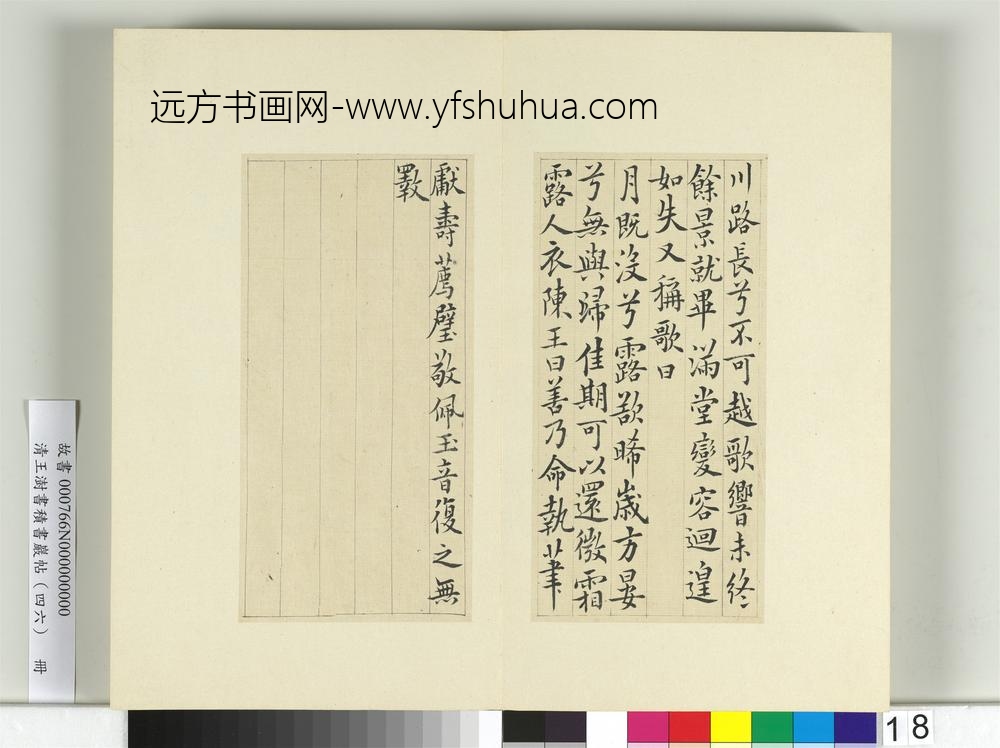 远方书画网-www.yfshuhua.com
川路長兮不可越歌響未終
餘景就畢滿堂變容迴遑
如失又稱歌曰
月既沒兮露欲晞歲方晏
兮無與歸佳期可以還微霜
霑人衣陳王曰善乃命執筆
獻壽薦璧敬佩玉音復之無
斁
故書 000766N000000000
清王澍書積書巖帖(四六) 冊
18